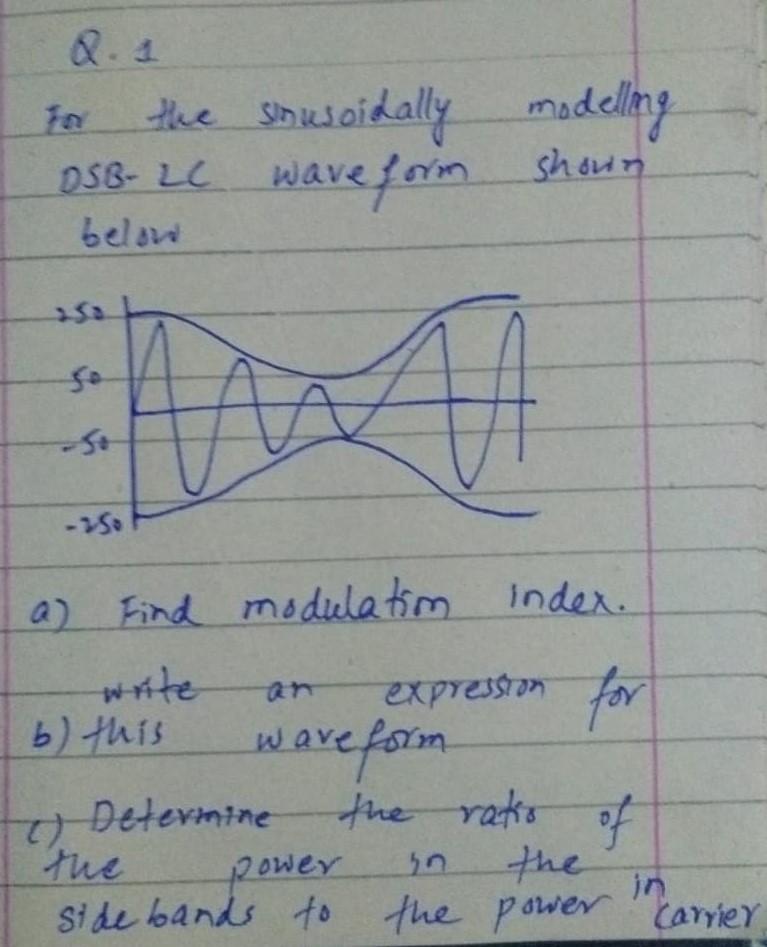 Q. 1
For the sinusoidally modelling
DSB-LC waveform shown
below
250
50
-50
-250
a) Find modulation index.
write an expression for
b) this waveform
c) Determine the ratio of
the power in the
sidebands to the power in carrier